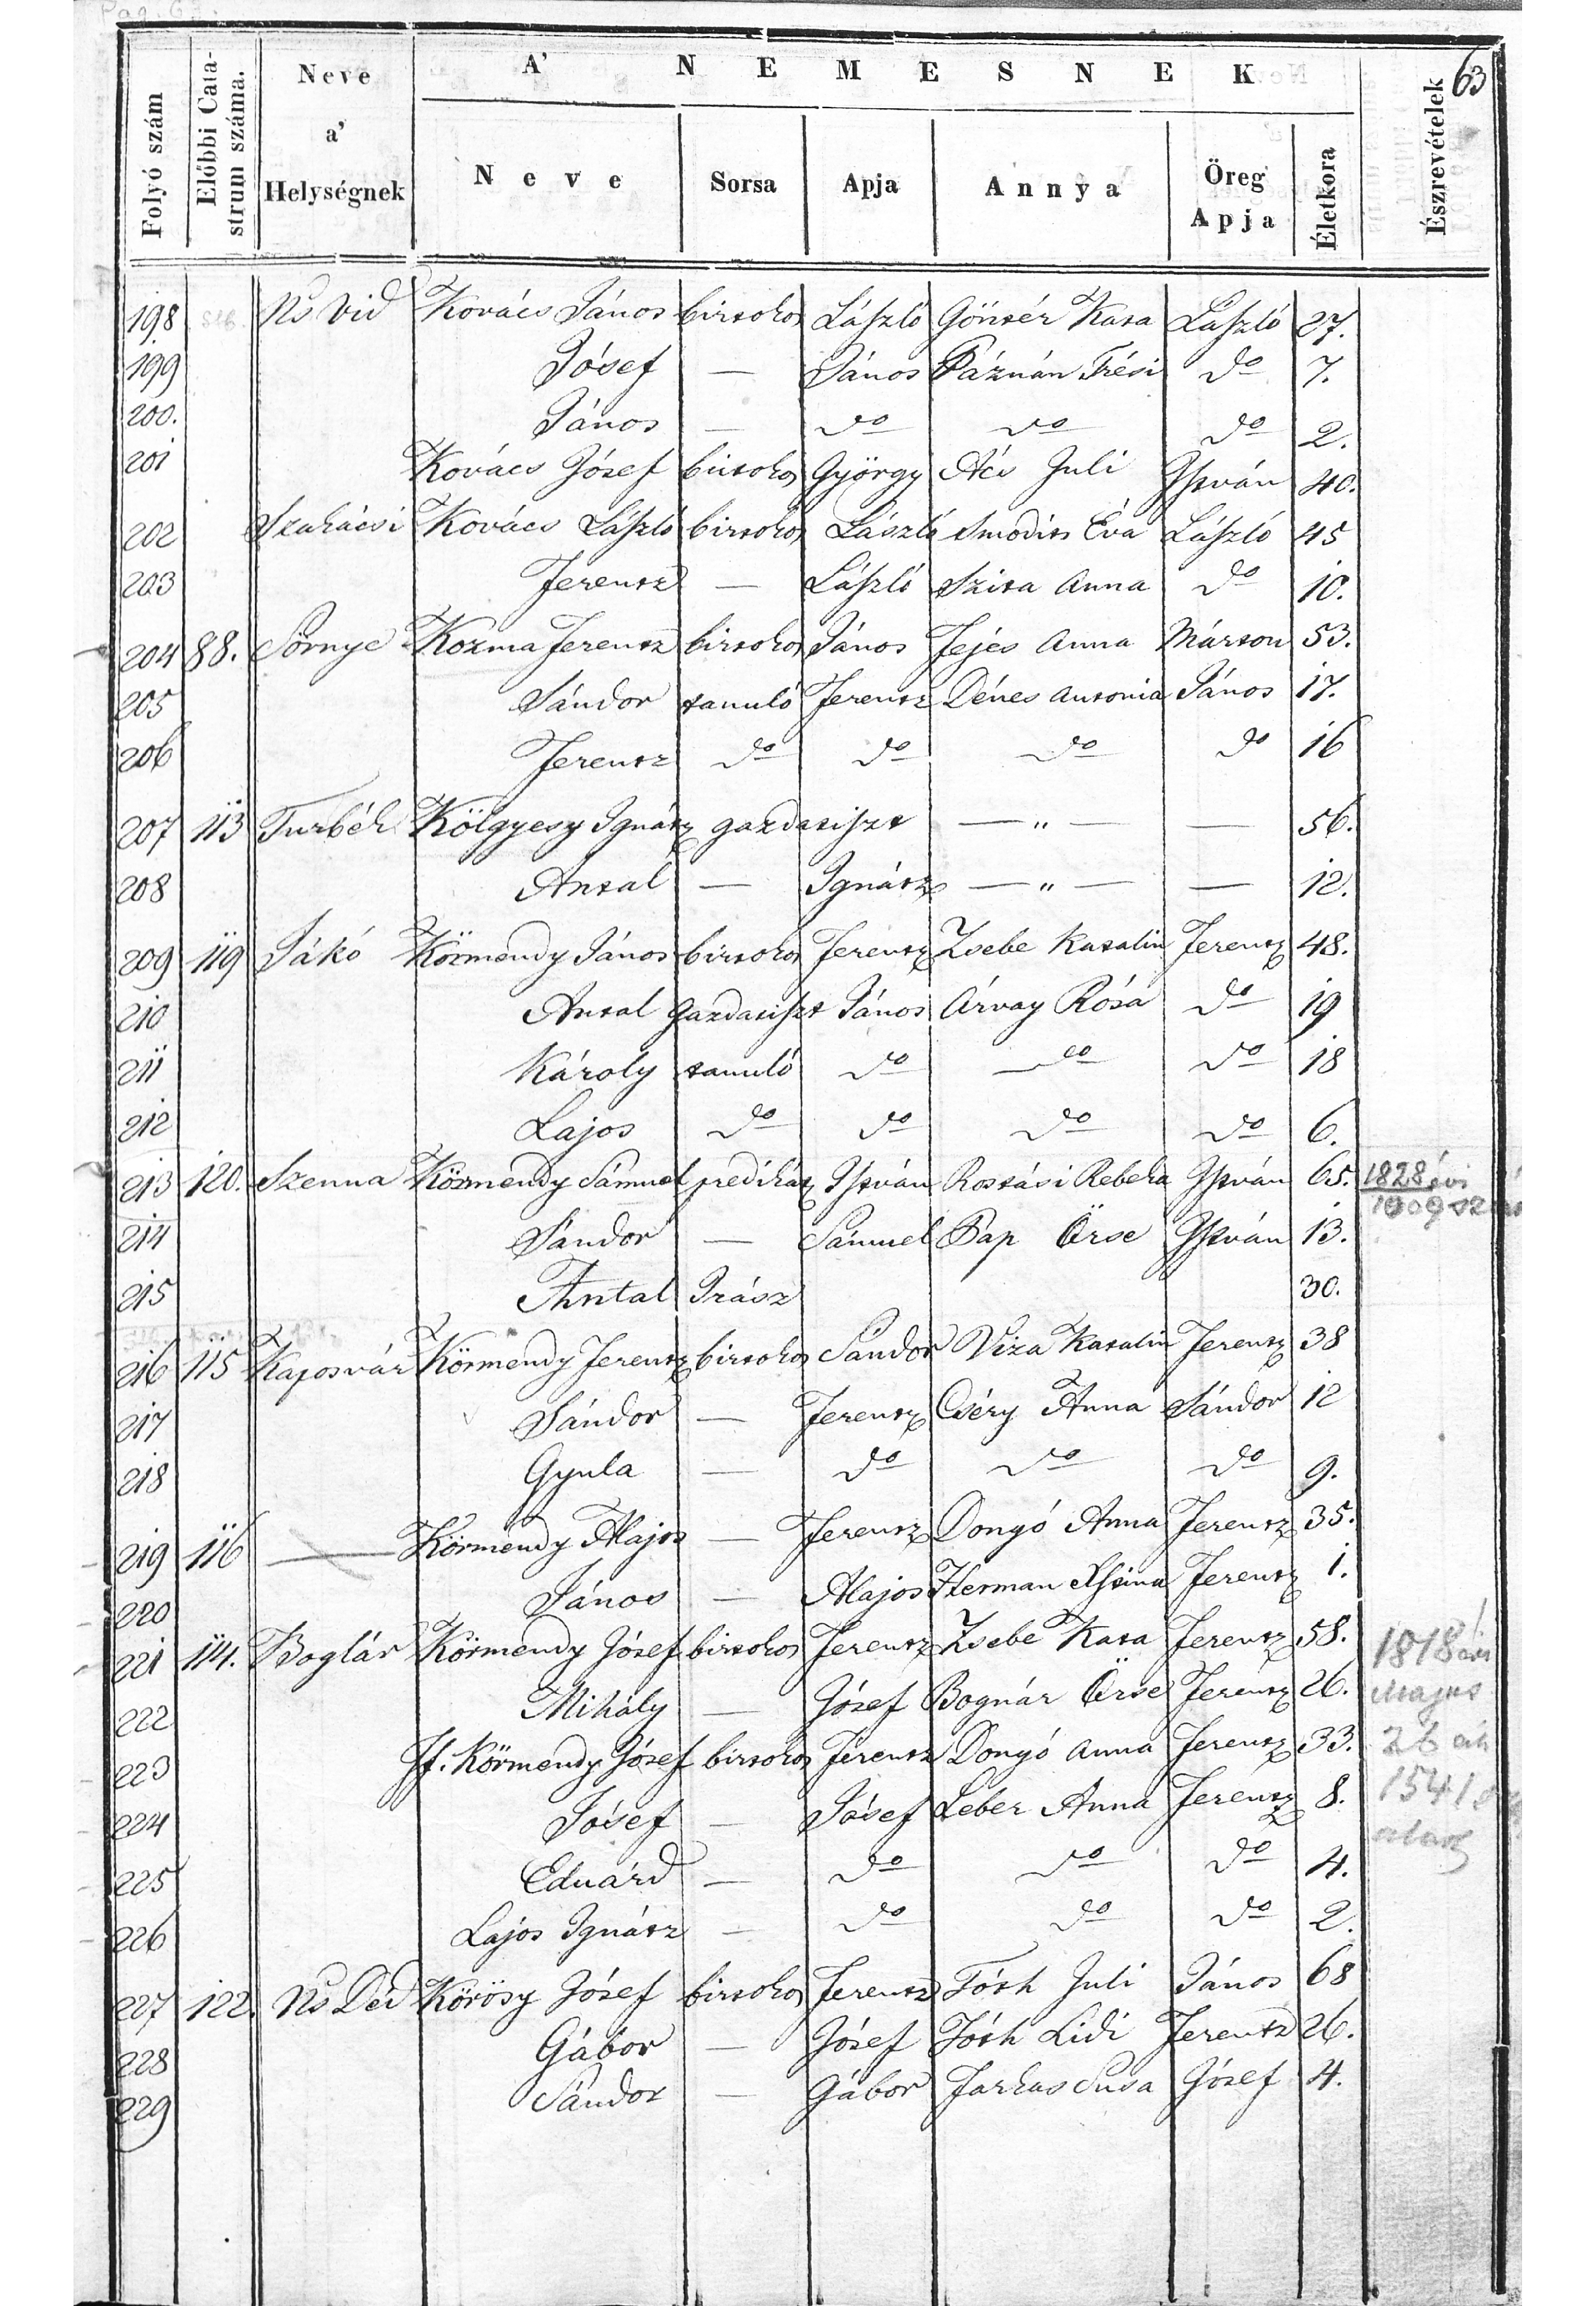 Pag. 63.
63
Folyó szám
Előbbi Cata-
strum száma.
Neve
a'
Helységnek
A' NEMESNEK
Neve
Sorsa
Apja
Annya
Öreg
Apja
Életkora
Észrevételek
198 Ns Vid Kovács János birtokos László Göntér Kata László 27.
199 Jósef — János Páznán Trési do 7.
200. János — do do do 2.
201 Kovács Józef birtokos György Ács Juli István 40.
202 Szakácsi Kovács László birtokos László Smodits Éva László 45
203 Ferentz — László Szita Anna do 10.
204 88. Sörnye Kozma Ferentz birtokos János Fejes Anna Márton 53.
205 Sándor tanuló Ferentz Dénes Antonia János 17.
206 Ferentz do do do do 16
207 113 Turbék Kölgyesy Ignátz gazdatiszt — " — — 56.
208 Antal — Ignátz — " — — 12.
209 119 Jákó Körmendy János birtokos Ferentz Zsebe Katalin Ferentz 48.
210 Antal gazdatiszt János Árvay Rósa do 19
211 Károly tanuló do do do 18
212 Lajos do do do do 6.
213 120. Szenna Körmendy Sámuel predikátz István Rostási Rebeka István 65. 1828 évi
1009 szám
214 Sándor — Sámuel Pap Örse István 13.
215 Antal Irász 30.
216 115 Kaposvár Körmendy Ferentz birtokos Sándor Viza Katalin Ferentz 38
217 Sándor — Ferentz Cséry Anna Sándor 12
218 Gyula — do do do 9.
219 116 — Körmendy Alajos — Ferentz Donyó Anna Ferentz 35.
220 János — Alajos Herman Ferentz 1.
221 114. Boglár Körmendy Józef birtokos Ferentz Zsebe Kata Ferentz 58. 1818 évi
222 Mihály — Józef Bognár Örse Ferentz 26. Majus
223 Jf. Körmendy Józef birtokos Ferentz Donyó Anna Ferentz 33. 26 án
224 Jósef — Jósef Léber Anna Ferentz 8. 1541
225 Eduárd — do do do 4. alatt
226 Lajos Ignátz — do do do 2.
227 122. Ns Déd Körösy Józef birtokos Ferentz Tóth Juli János 68
228 Gábor — Józef Tóth Lidi Ferentz 26.
229 Sándor — Gábor Farkas Susa Józef 4.